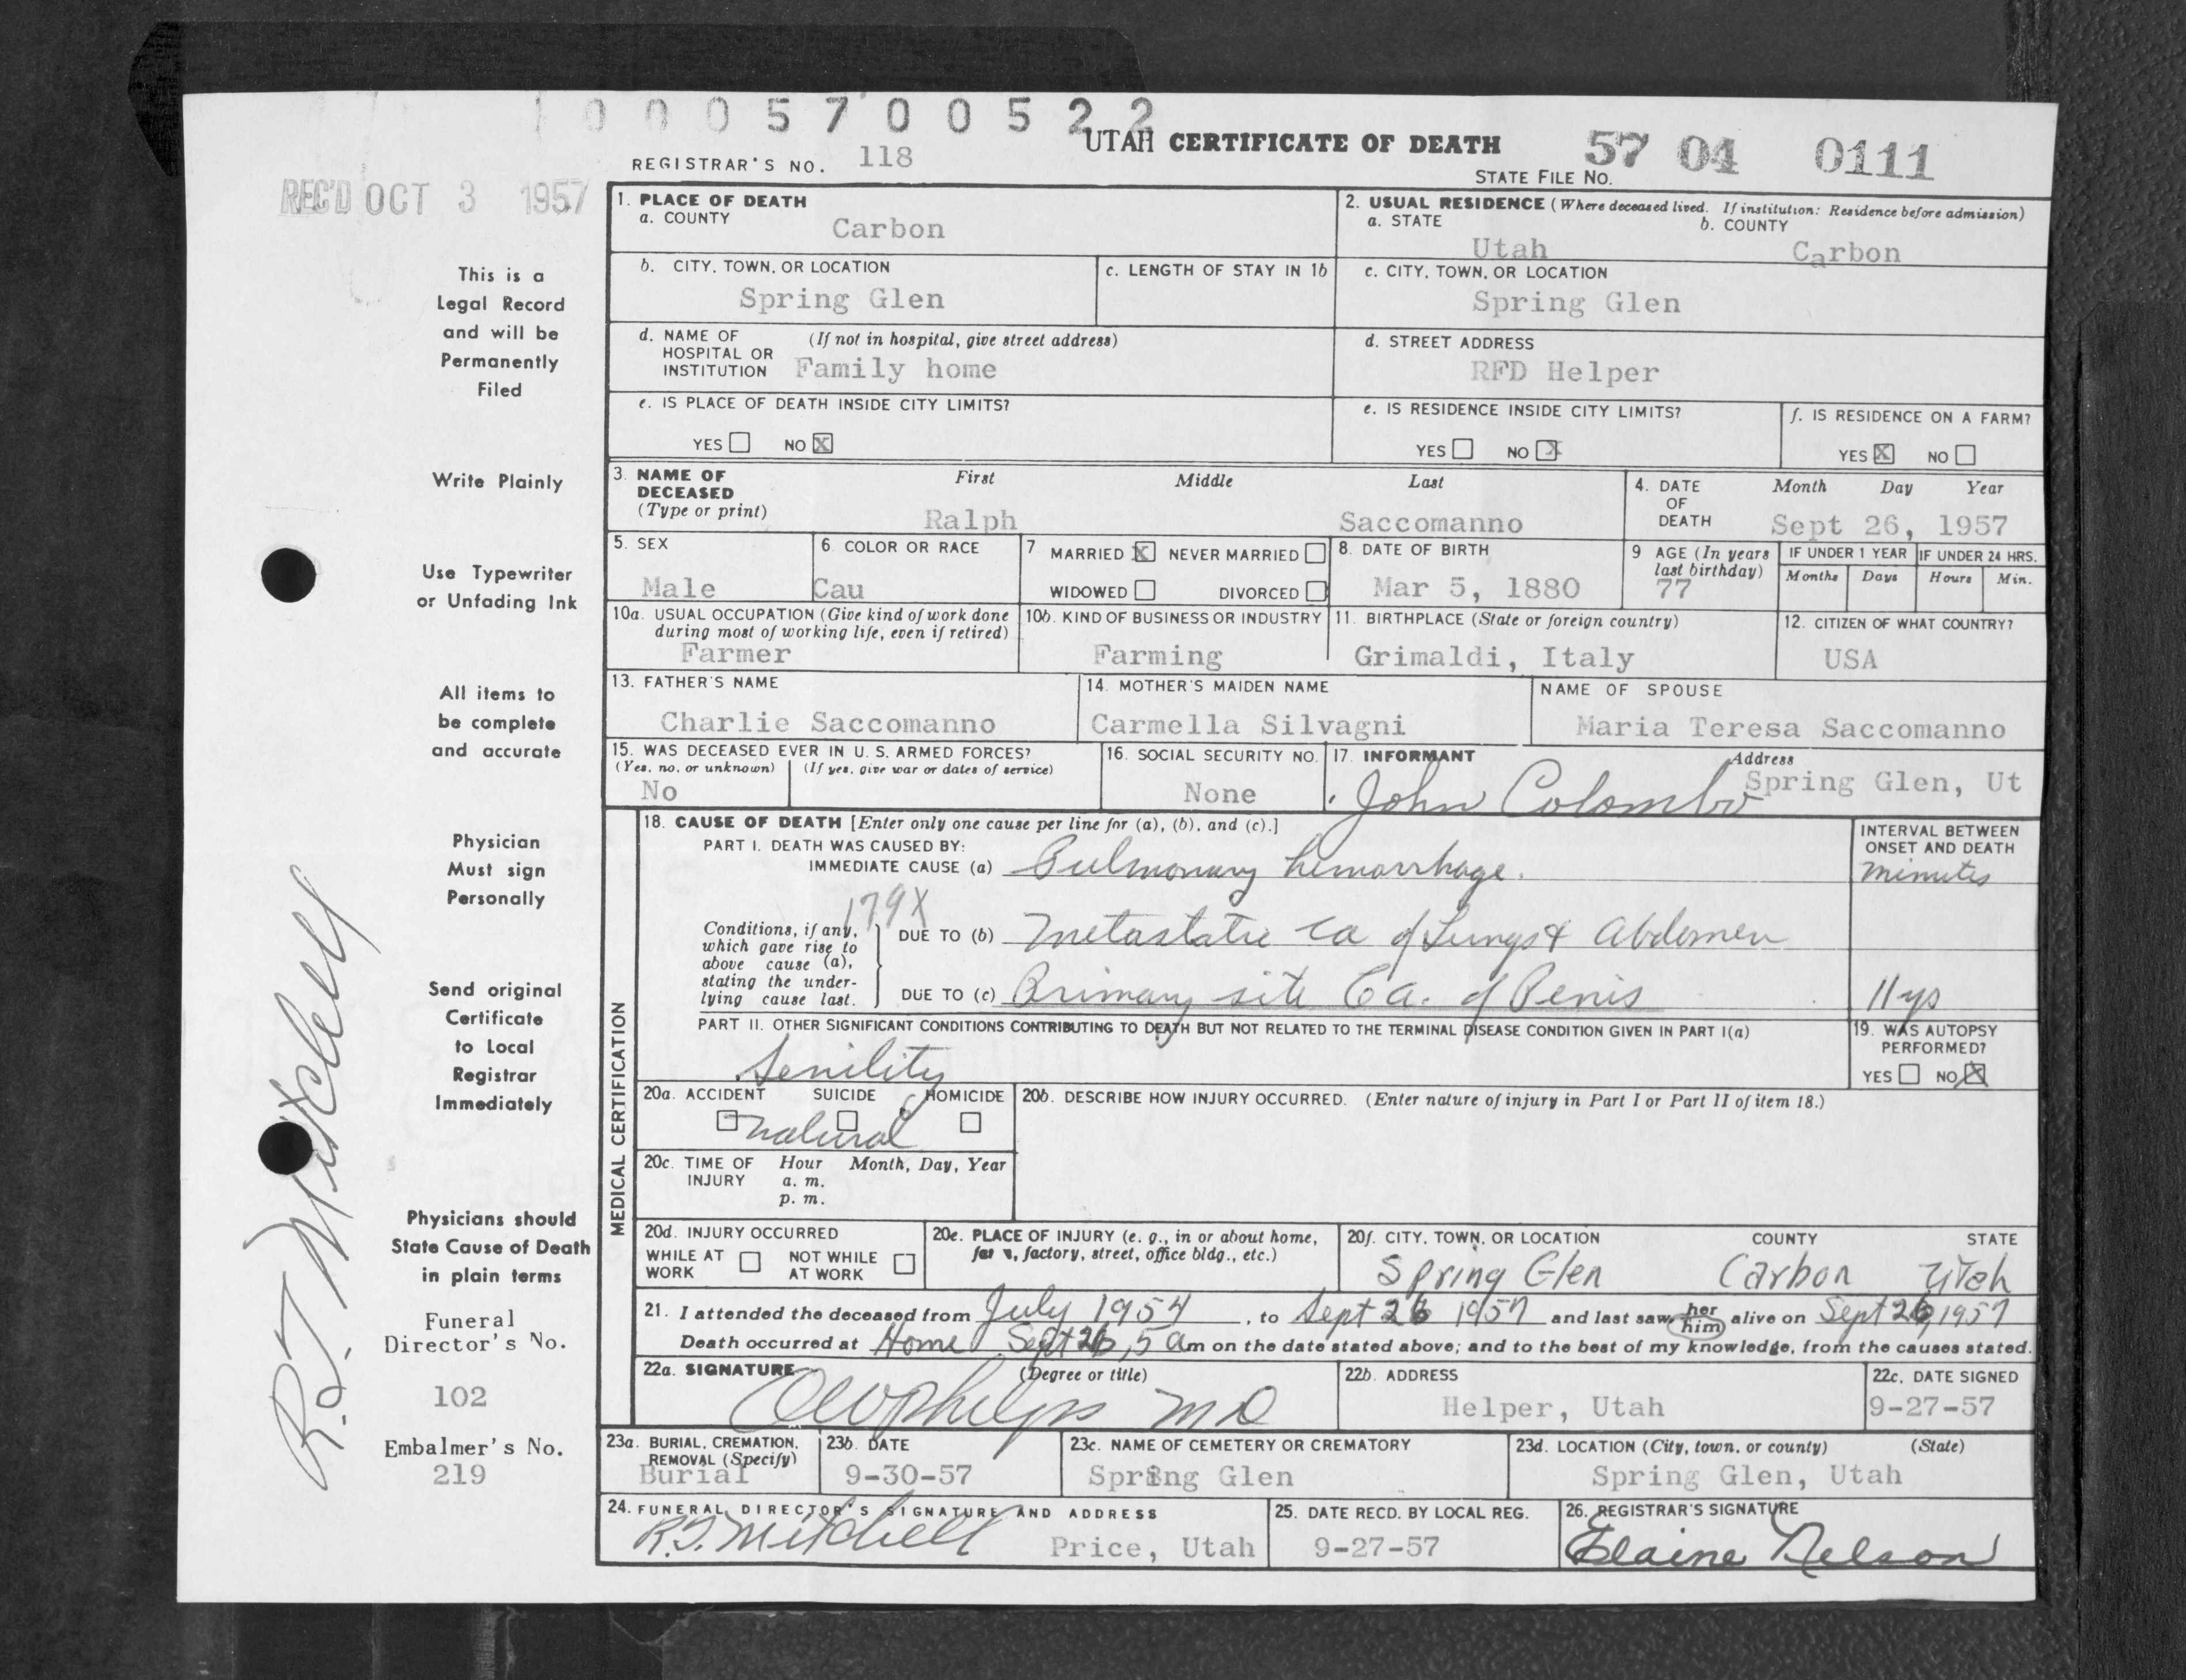 0005700522
UTAH CERTIFICATE OF DEATH
57 04 0111
REGISTRAR'S NO. 118
STATE FILE NO.
REC'D OCT 3 1957
This is a
Legal Record
and will be
Permanently
Filed
Write Plainly
Use Typewriter
or Unfading Ink
All items to
be complete
and accurate
Physician
Must sign
Personally
Send original
Certificate
to Local
Registrar
Immediately
Physicians should
State Cause of Death
in plain terms
Funeral
Director's No.
102
Embalmer's No.
219
R.J. Mitchell
1. PLACE OF DEATH
a. COUNTY
Carbon
2. USUAL RESIDENCE (Where deceased lived. If institution: Residence before admission)
a. STATE b. COUNTY
Utah Carbon
b. CITY, TOWN, OR LOCATION
Spring Glen
c. LENGTH OF STAY IN 1b
c. CITY, TOWN, OR LOCATION
Spring Glen
d. NAME OF (If not in hospital, give street address)
HOSPITAL OR
INSTITUTION Family home
d. STREET ADDRESS
RFD Helper
e. IS PLACE OF DEATH INSIDE CITY LIMITS?
YES NO X
e. IS RESIDENCE INSIDE CITY LIMITS?
YES NO X
f. IS RESIDENCE ON A FARM?
YES X NO
3. NAME OF First Middle Last
DECEASED
(Type or print)
Ralph Saccomanno
4. DATE Month Day Year
OF
DEATH Sept 26, 1957
5. SEX
Male
6. COLOR OR RACE
Cau
7. MARRIED X NEVER MARRIED
WIDOWED DIVORCED
8. DATE OF BIRTH
Mar 5, 1880
9 AGE (In years
last birthday)
77
IF UNDER 1 YEAR IF UNDER 24 HRS.
Months Days Hours Min.
10a. USUAL OCCUPATION (Give kind of work done
during most of working life, even if retired)
Farmer
10b. KIND OF BUSINESS OR INDUSTRY
Farming
11. BIRTHPLACE (State or foreign country)
Grimaldi, Italy
12. CITIZEN OF WHAT COUNTRY?
USA
13. FATHER'S NAME
Charlie Saccomanno
14. MOTHER'S MAIDEN NAME
Carmella Silvagni
NAME OF SPOUSE
Maria Teresa Saccomanno
15. WAS DECEASED EVER IN U.S. ARMED FORCES?
(Yes, no, or unknown) (If yes, give war or dates of service)
No
16. SOCIAL SECURITY NO.
None
17. INFORMANT Address
John Colombo Spring Glen, Ut
MEDICAL CERTIFICATION
18. CAUSE OF DEATH [Enter only one cause per line for (a), (b), and (c).]
INTERVAL BETWEEN
ONSET AND DEATH
PART I. DEATH WAS CAUSED BY:
IMMEDIATE CAUSE (a) Pulmonary hemorrhage. minutes
179X
Conditions, if any,
which gave rise to
above cause (a),
stating the under-
lying cause last.
DUE TO (b) Metastatic Ca of Lungs & Abdomen
DUE TO (c) Primary site Ca. of Penis 11 ys
PART II. OTHER SIGNIFICANT CONDITIONS CONTRIBUTING TO DEATH BUT NOT RELATED TO THE TERMINAL DISEASE CONDITION GIVEN IN PART I(a)
Senility
19. WAS AUTOPSY
PERFORMED?
YES NO X
20a. ACCIDENT SUICIDE HOMICIDE
natural
20b. DESCRIBE HOW INJURY OCCURRED. (Enter nature of injury in Part I or Part II of item 18.)
20c. TIME OF Hour Month, Day, Year
INJURY a. m.
p. m.
20d. INJURY OCCURRED
WHILE AT NOT WHILE
WORK AT WORK
20e. PLACE OF INJURY (e. g., in or about home,
farm, factory, street, office bldg., etc.)
20f. CITY, TOWN, OR LOCATION COUNTY STATE
Spring Glen Carbon Utah
21. I attended the deceased from July 1954, to Sept 26 1957 and last saw her him alive on Sept 26, 1957
Death occurred at Home Sept 26, 5 am on the date stated above; and to the best of my knowledge, from the causes stated.
22a. SIGNATURE (Degree or title)
Phelps MD
22b. ADDRESS
Helper, Utah
22c. DATE SIGNED
9-27-57
23a. BURIAL, CREMATION,
REMOVAL (Specify)
Burial
23b. DATE
9-30-57
23c. NAME OF CEMETERY OR CREMATORY
Spring Glen
23d. LOCATION (City, town, or county) (State)
Spring Glen, Utah
24. FUNERAL DIRECTOR'S SIGNATURE AND ADDRESS
R.J. Mitchell Price, Utah
25. DATE RECD. BY LOCAL REG.
9-27-57
26. REGISTRAR'S SIGNATURE
Elaine Nelson